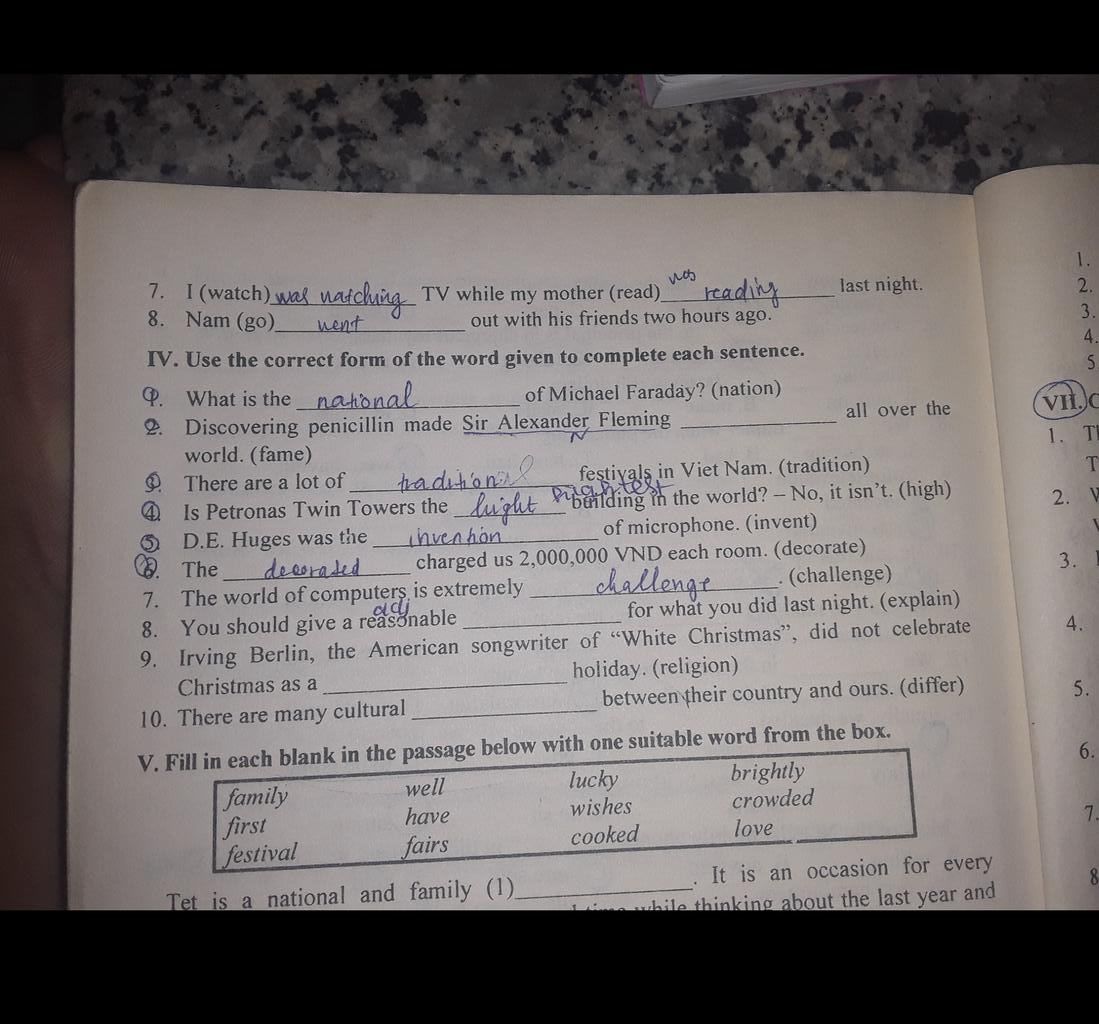 7. I (watch) was watching TV while my mother (read) was reading last night.
8. Nam (go) went out with his friends two hours ago.
IV. Use the correct form of the word given to complete each sentence.
1. What is the national of Michael Faraday? (nation)
2. Discovering penicillin made Sir Alexander Fleming ____________ all over the
N
world. (fame)
3. There are a lot of traditional festivals in Viet Nam. (tradition)
4. Is Petronas Twin Towers the hight building in the world? – No, it isn't. (high)
5. D.E. Huges was the invention of microphone. (invent)
6. The decorated charged us 2,000,000 VND each room. (decorate)
7. The world of computers is extremely challenge. (challenge)
adj
8. You should give a reasonable ____________ for what you did last night. (explain)
9. Irving Berlin, the American songwriter of "White Christmas", did not celebrate
Christmas as a ____________ holiday. (religion)
10. There are many cultural ____________ between their country and ours. (differ)
V. Fill in each blank in the passage below with one suitable word from the box.
family well lucky brightly
first have wishes crowded
festival fairs cooked love
Tet is a national and family (1)____________. It is an occasion for every
while thinking about the last year and
1.
2.
3.
4.
5
VII. C
1. T
T
2.
3.
4.
5.
6.
7.
8